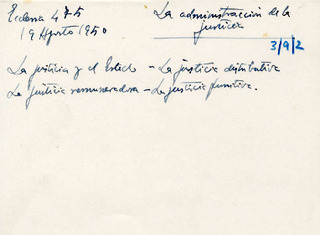 Ecclesia 475
19 Agosto 1950
La administración de la
justicia
3/9/2
La justicia y el Estado - La justicia distributiva
La justicia remuneradora - La justicia punitiva.